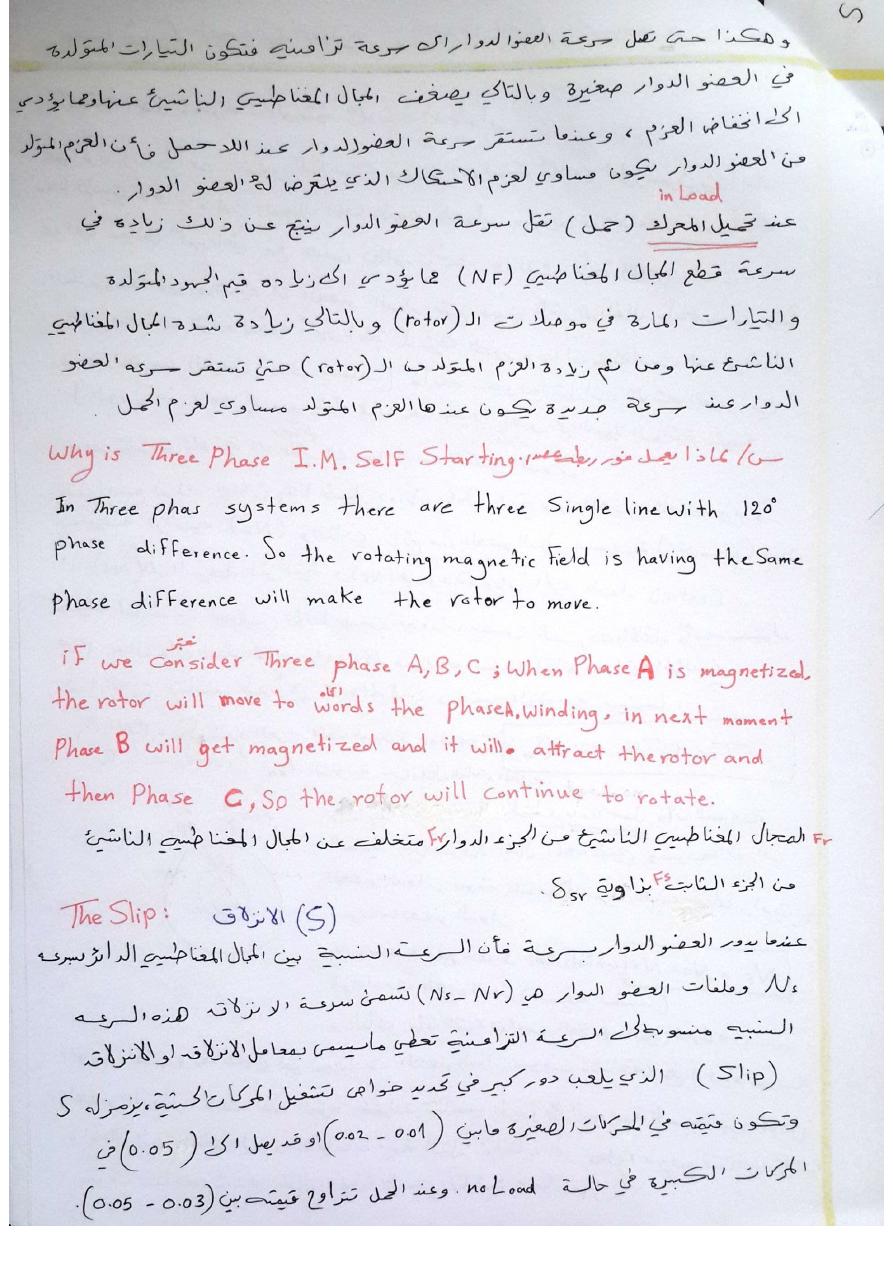 وهكذا حتى تصل سرعة العضو الدوار الى سرعة تزامنيه فتكون التيارات المتولدة
في العضو الدوار صغيرة وبالتالي يضعف المجال المغناطيسي الناشئ عنها ومما يؤدي
الى انخفاض العزم ، وعندما تستقر سرعة العضو الدوار عند اللاحمل فأن العزم المتولد
من العضو الدوار يكون مساوي لعزم الاحتكاك الذي يتعرض له العضو الدوار .
in Load
عند تحميل المحرك (حمل) تقل سرعة العضو الدوار ينتج عن ذلك زيادة في
سرعة قطع المجال المغناطيسي (NF) مما يؤدي الى زياده قيم الجهود المتولدة
والتيارات المارة في موصلات الـ (rotor) وبالتالي زيادة شدة المجال المغناطيسي
الناشئ عنها ومن ثم زيادة العزم المتولد من الـ (rotor) حتى تستقر سرعه العضو
الدوار عند سرعة جديدة يكون عندها العزم المتولد مساوي لعزم الحمل .
س/ لماذا يعمل فور ربطه Why is Three Phase I.M. Self Starting.
In Three phas systems there are three Single line with 120°
phase difference. So the rotating magnetic Field is having the Same
phase difference will make the rotor to move.
نعتبر
if we consider Three phase A, B, C ; When Phase A is magnetized,
the rotor will move to words the phase A, winding, in next moment
Phase B will get magnetized and it will attract the rotor and
then Phase C, So the rotor will continue to rotate.
المجال المغناطيسي الناشئ من الجزء الدوار Fr متخلف عن المجال المغناطيسي الناشئ Fr
من الجزء الثابت Fs بزاوية δsr.
The Slip: الانزلاق (S)
عندما يدور العضو الدوار بسرعة فأن السرعة النسبية بين المجال المغناطيسي الدائر بسرعه
Ns وملفات العضو الدوار هي (Ns - Nr) تسمى سرعة الانزلاق هذه السرعه
النسبيه منسوبه الى السرعة التزامنية تعطي مايسمى بمعامل الانزلاق او الانزلاق
(Slip) الذي يلعب دور كبير في تحديد خواص تشغيل المحركات الحثية ، يرمز له S
وتكون قيمته في المحركات الصغيرة مابين (0.01 - 0.02) او قد يصل الى (0.05) في
المركات الكبيرة في حالة no Load . وعند الحمل تتراوح قيمته بين (0.03 - 0.05).